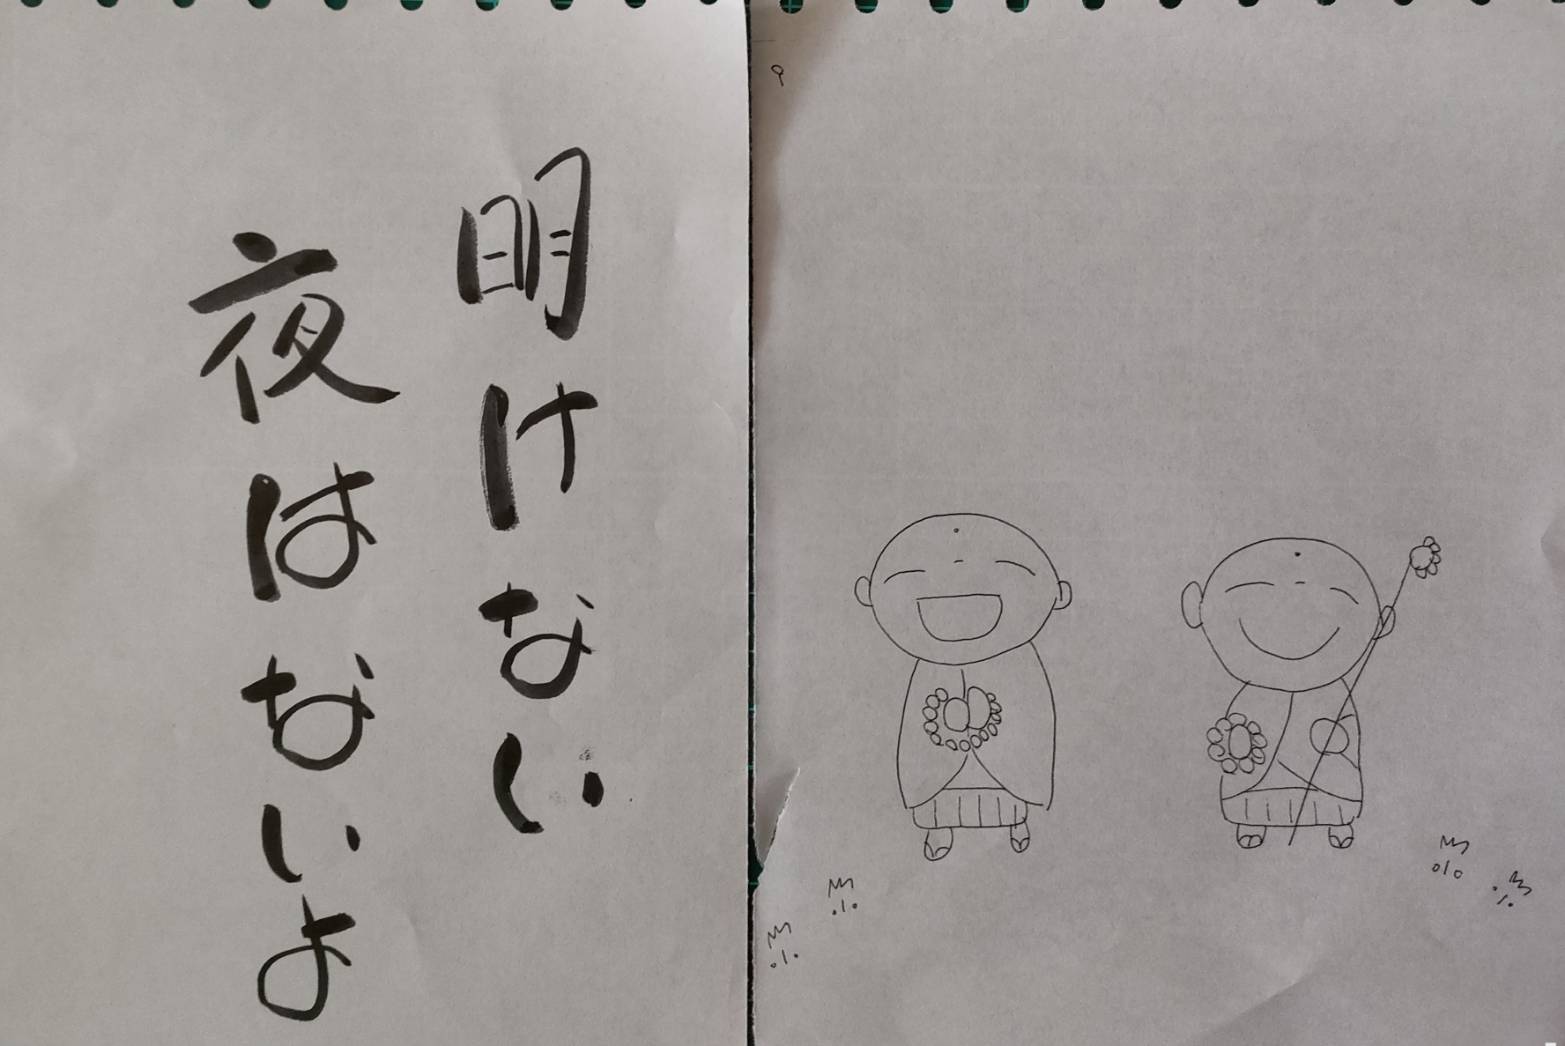 明けない
夜はないよ